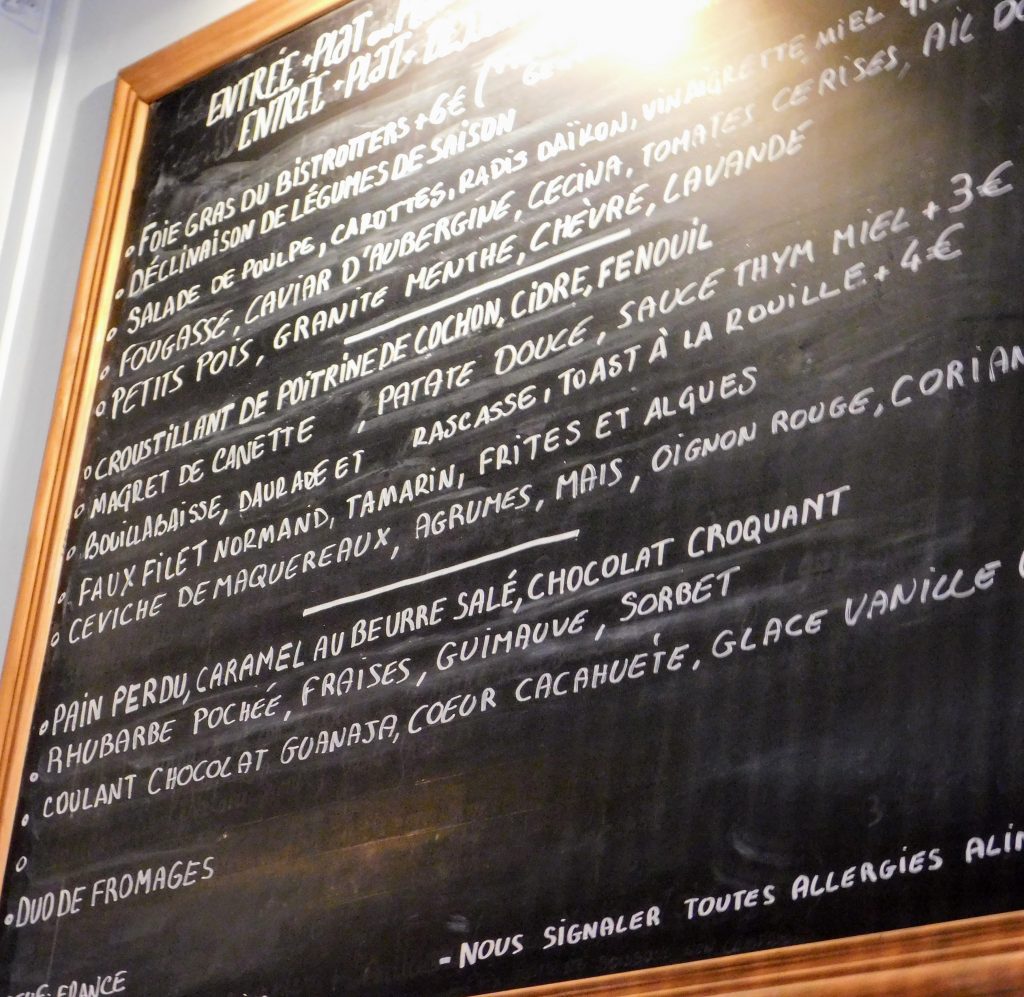 ENTRÉE + PLAT
ENTRÉE + PLAT +
° FOIE GRAS DU BISTROTTERS +6€ (
° DÉCLINAISON DE LÉGUMES DE SAISON
° SALADE DE POULPE, CAROTTES, RADIS DAÏKON, VINAIGRETTE, MIEL
° FOUGASSE, CAVIAR D'AUBERGINE, CECINA, TOMATES CERISES, AIL
° PETITS POIS, GRANITE MENTHE, CHÈVRE, LAVANDE
° CROUSTILLANT DE POITRINE DE COCHON, CIDRE, FENOUIL
° MAGRET DE CANETTE , PATATE DOUCE, SAUCE THYM MIEL + 3€
° BOUILLABAISSE, DAURADE ET RASCASSE, TOAST À LA ROUILLE + 4€
° FAUX FILET NORMAND, TAMARIN, FRITES ET ALGUES
° CEVICHE DE MAQUEREAUX, AGRUMES, MAIS, OIGNON ROUGE, CORIAN
° PAIN PERDU, CARAMEL AU BEURRE SALÉ, CHOCOLAT CROQUANT
° RHUBARBE POCHÉE, FRAISES, GUIMAUVE, SORBET
° COULANT CHOCOLAT GUANAJA, COEUR CACAHUETE, GLACE VANILLE
°
° DUO DE FROMAGES
- NOUS SIGNALER TOUTES ALLERGIES ALI
FRANCE